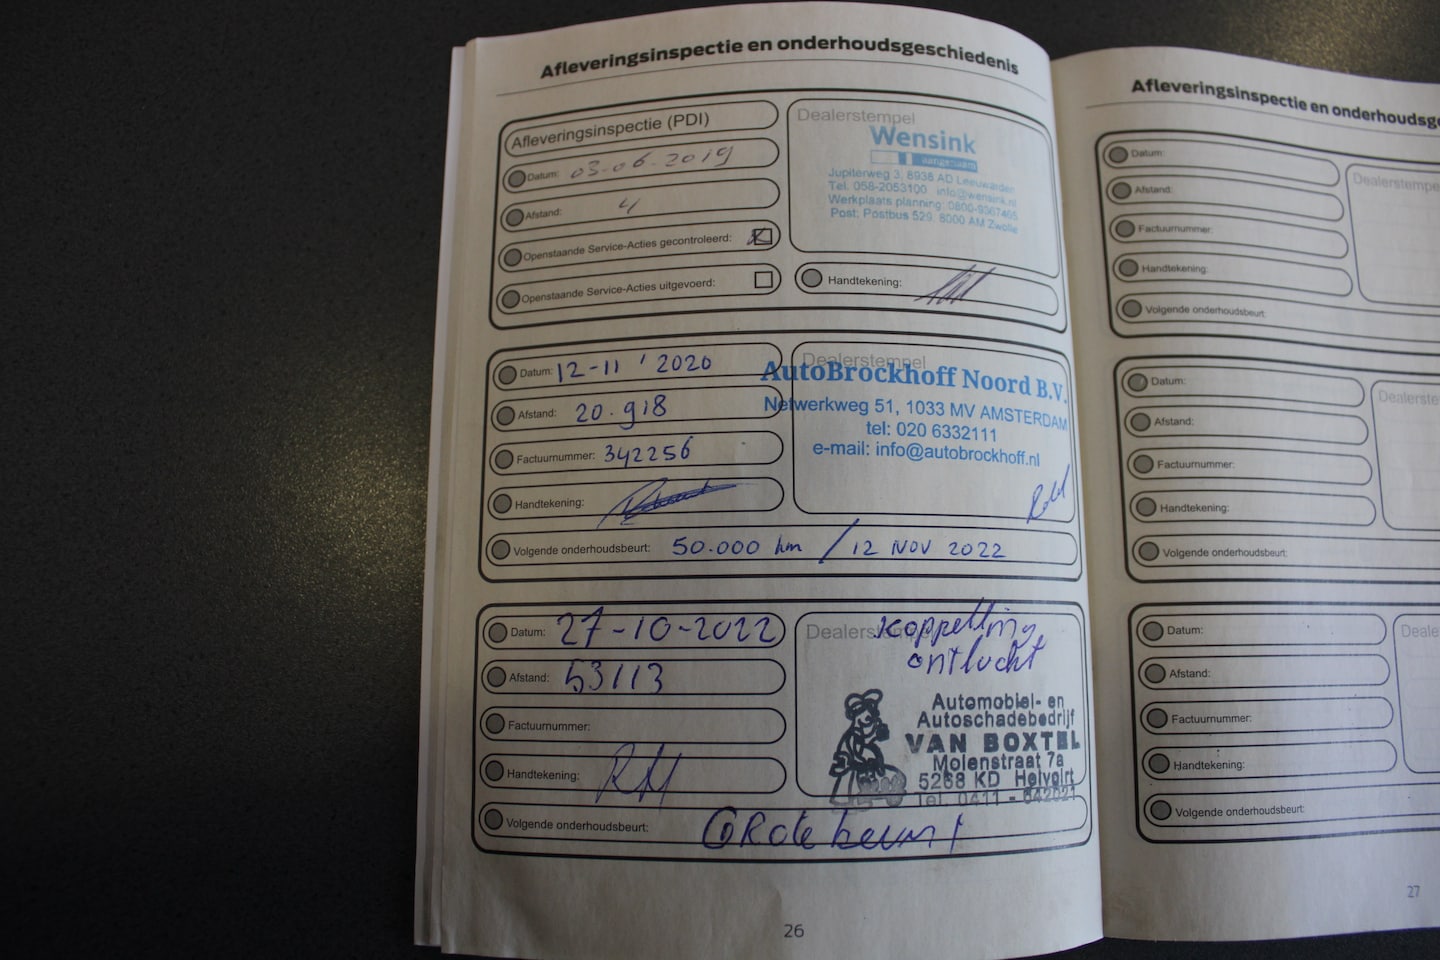 Afleveringsinspectie en onderhoudsgeschiedenis
Afleveringsinspectie (PDI)
Datum: 03-06-2019
Afstand: 4
Openstaande Service-Acties gecontroleerd:
Openstaande Service-Acties uitgevoerd:
Dealerstempel
Wensink
Jupiterweg 3, 8938 AD Leeuwarden
Tel. 058-2053100 info@wensink.nl
Werkplaats planning: 0800-9367465
Post: Postbus 529, 8000 AM Zwolle
Handtekening:
Datum: 12-11 ' 2020
Afstand: 20.918
Factuurnummer: 342256
Handtekening:
Dealerstempel
AutoBrockhoff Noord B.V.
Netwerkweg 51, 1033 MV AMSTERDAM
tel: 020 6332111
e-mail: info@autobrockhoff.nl
Volgende onderhoudsbeurt: 50.000 km / 12 NOV 2022
Datum: 27-10-2022
Afstand: 53113
Factuurnummer:
Handtekening:
Dealerstempel
koppeling
ontlucht
Automobiel- en
Autoschadebedrijf
VAN BOXTEL
Molenstraat 7a
5268 KD Helvoirt
Tel. 0411 - 642021
Volgende onderhoudsbeurt: GRote beurt
26
Afleveringsinspectie en onderhoudsg
Datum:
Afstand:
Factuurnummer:
Handtekening:
Volgende onderhoudsbeurt:
Dealerstempe
Datum:
Afstand:
Factuurnummer:
Handtekening:
Volgende onderhoudsbeurt:
Dealerste
Datum:
Afstand:
Factuurnummer:
Handtekening:
Volgende onderhoudsbeurt:
Deale
27